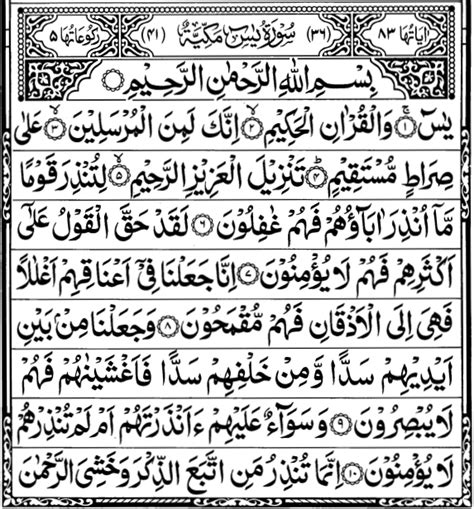 اٰیاتها ۸۳ (۳۶) سُوْرَةُ يٰسٓ مَكِّيَّةٌ (۴۱) رکوعاتها ۵
بِسْمِ اللهِ الرَّحْمٰنِ الرَّحِيْمِ
يٰسٓ ۝۱ وَالْقُرْاٰنِ الْحَكِيْمِ ۝۲ اِنَّكَ لَمِنَ الْمُرْسَلِيْنَ ۝۳ عَلٰى
صِرَاطٍ مُّسْتَقِيْمٍ ۝۴ تَنْزِيْلَ الْعَزِيْزِ الرَّحِيْمِ ۝۵ لِتُنْذِرَ قَوْمًا
مَّاۤ اُنْذِرَ اٰبَآؤُهُمْ فَهُمْ غٰفِلُوْنَ ۝۶ لَقَدْ حَقَّ الْقَوْلُ عَلٰۤى
اَكْثَرِهِمْ فَهُمْ لَا يُؤْمِنُوْنَ ۝۷ اِنَّا جَعَلْنَا فِيْۤ اَعْنَاقِهِمْ اَغْلٰلًا
فَهِيَ اِلَى الْاَذْقَانِ فَهُمْ مُّقْمَحُوْنَ ۝۸ وَجَعَلْنَا مِنْۢ بَيْنِ
اَيْدِيْهِمْ سَدًّا وَّمِنْ خَلْفِهِمْ سَدًّا فَاَغْشَيْنٰهُمْ فَهُمْ
لَا يُبْصِرُوْنَ ۝۹ وَسَوَآءٌ عَلَيْهِمْ ءَاَنْذَرْتَهُمْ اَمْ لَمْ تُنْذِرْهُمْ
لَا يُؤْمِنُوْنَ ۝۱۰ اِنَّمَا تُنْذِرُ مَنِ اتَّبَعَ الذِّكْرَ وَخَشِيَ الرَّحْمٰنَ